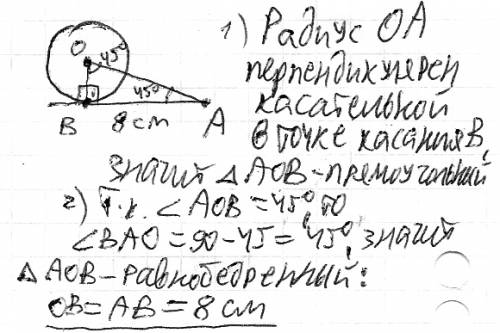 O 45°
45°
B 8 см A
1) Радиус OA
перпендикулярен
касательной
в точке касания B,
значит △ AOB - прямоугольный
2) Т.к. ∠AOB = 45°, то
∠BAO = 90 - 45 = 45°, значит
△ AOB - равнобедренный:
OB = AB = 8 см